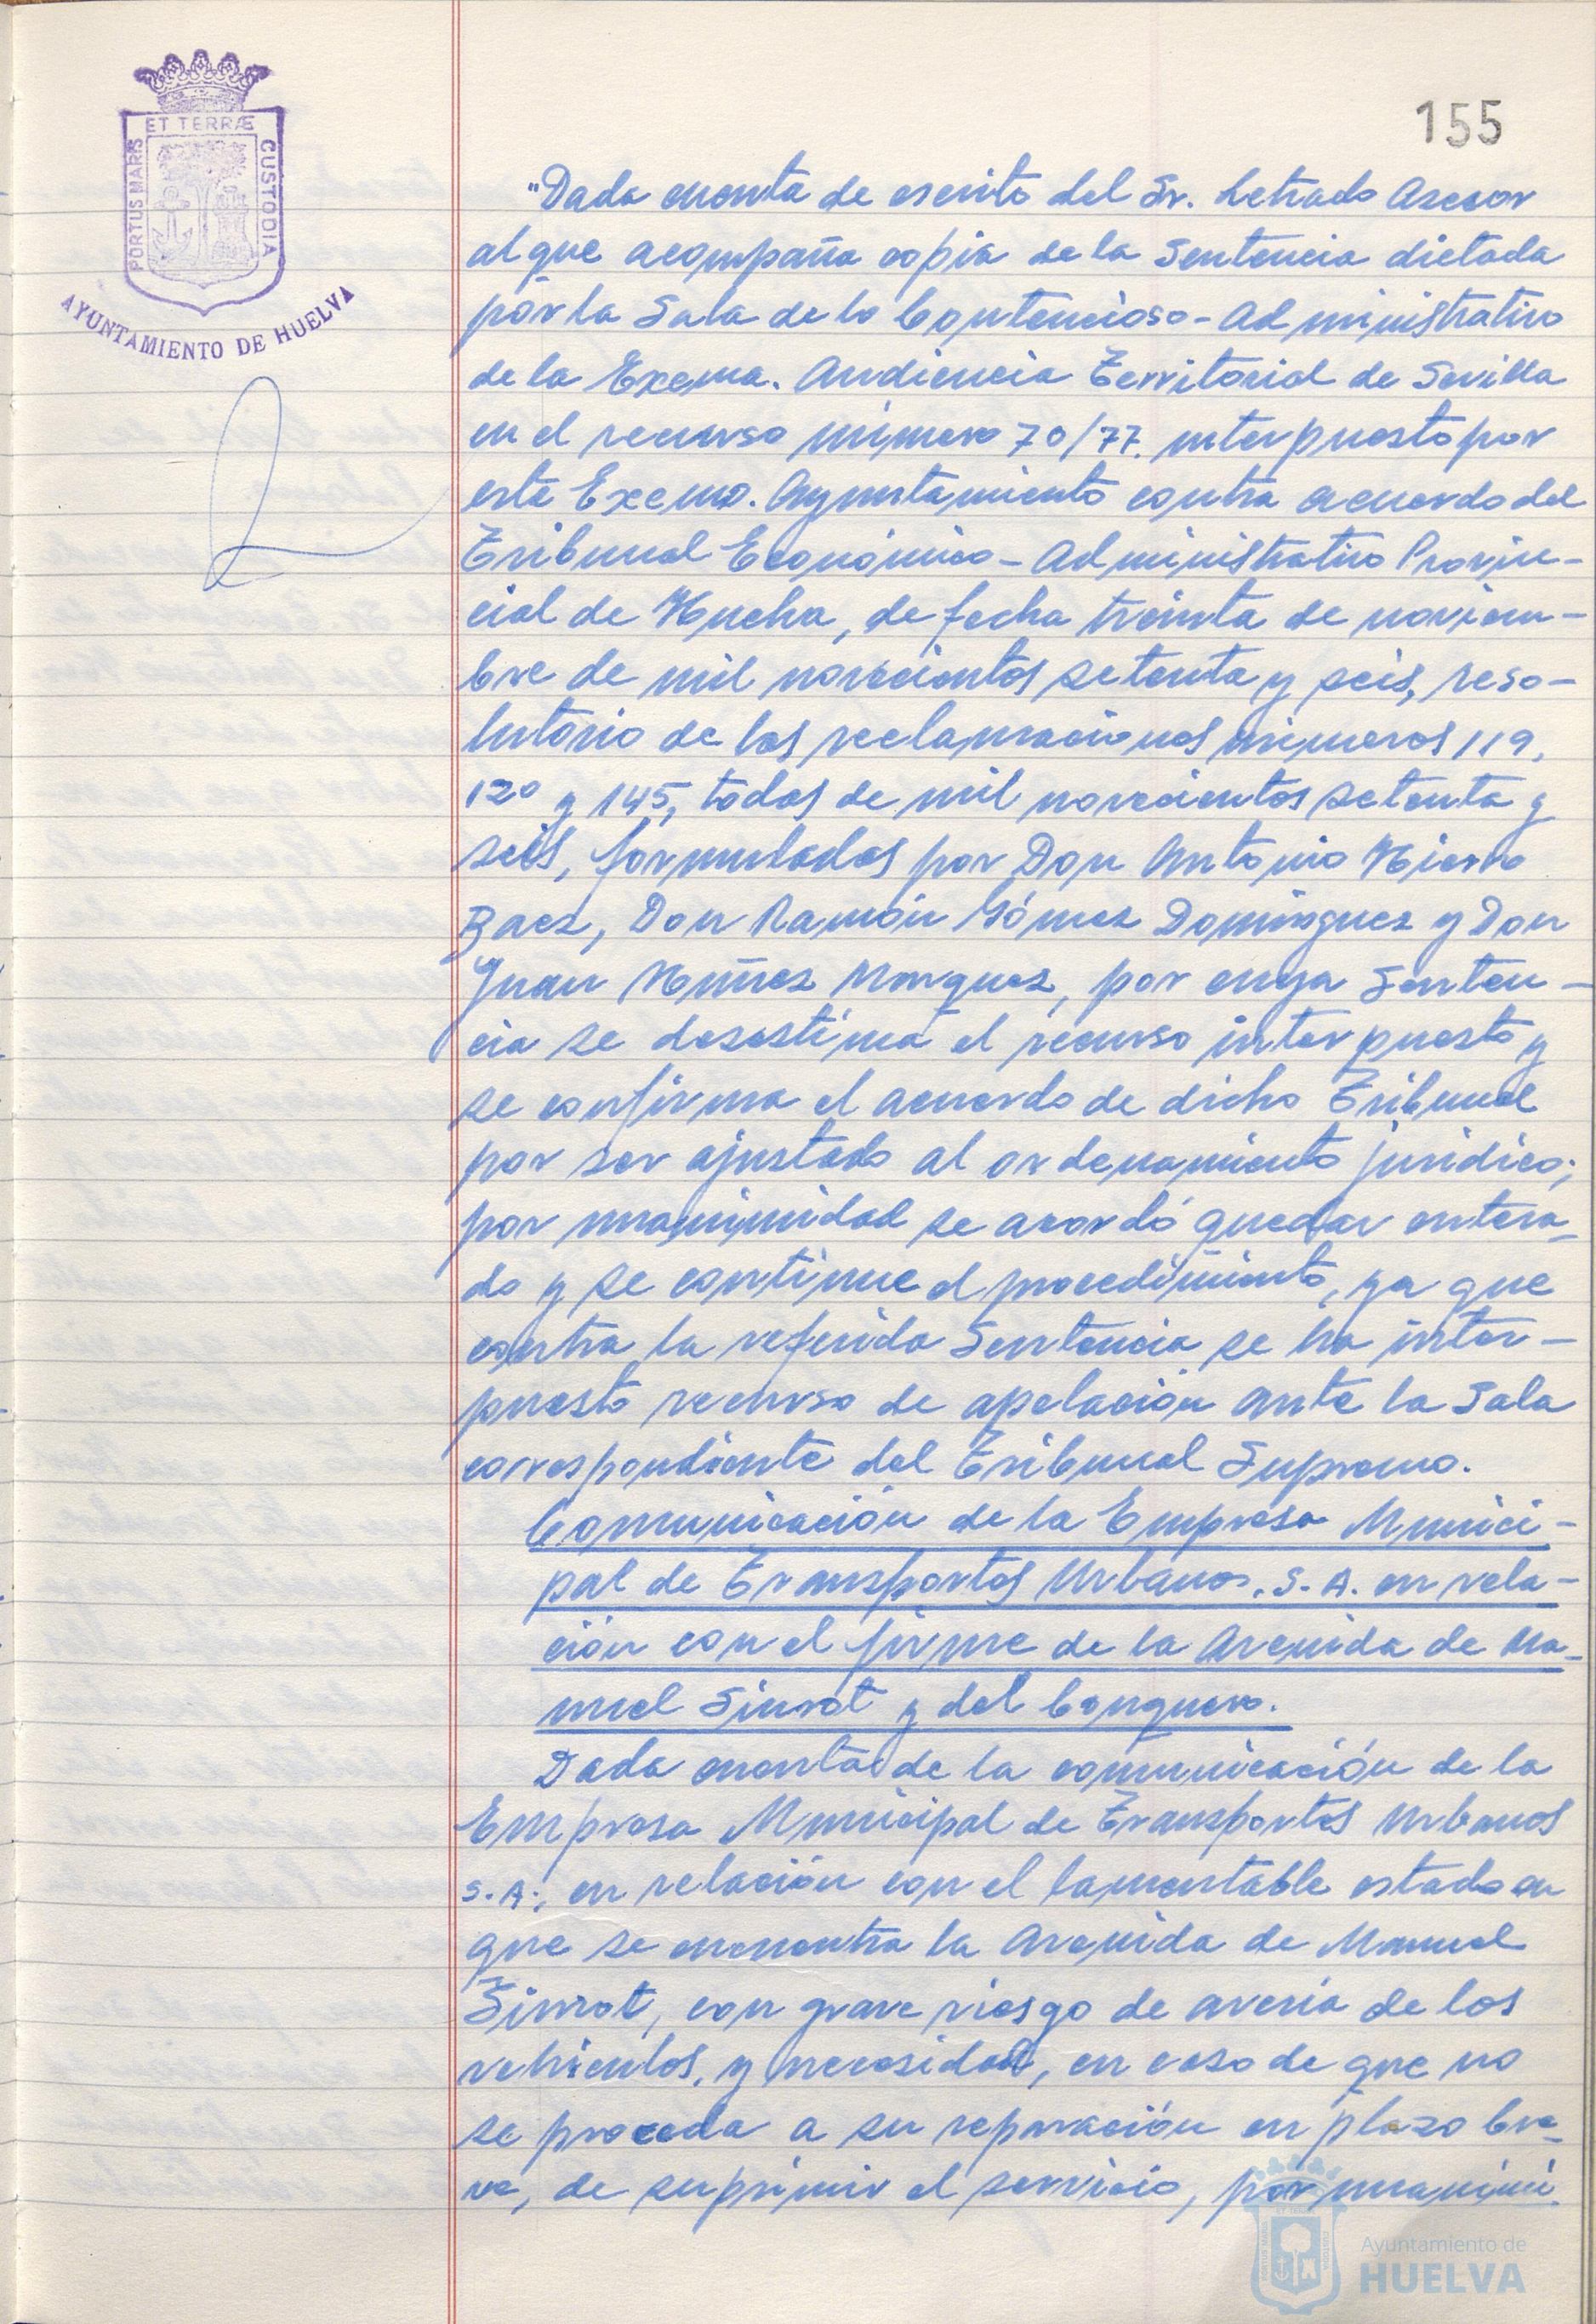 155
ET TERRÆ
PORTUS MARIS
CUSTODIA
AYUNTAMIENTO DE HUELVA
"Dada cuenta de escrito del Sr. Letrado Asesor
al que acompaña copia de la Sentencia dictada
por la Sala de lo Contencioso-Administrativo
de la Excma. Audiencia Territorial de Sevilla
en el recurso número 70/77. interpuesto por
este Excmo. Ayuntamiento contra acuerdo del
Tribunal Económico-Administrativo Provin-
cial de Huelva, de fecha treinta de noviem-
bre de mil novecientos setenta y seis, reso-
lutorio de las reclamaciones números 119,
120 y 145, todas de mil novecientos setenta y
seis, formuladas por Don Antonio Hierro
Baez, Don Ramón Gómez Domínguez y Don
Juan Núñez Marquez, por cuya Senten-
cia se desestima el recurso interpuesto y
se confirma el acuerdo de dicho Tribunal
por ser ajustado al ordenamiento jurídico;
por unanimidad se acordó quedar entera-
do y se continue el procedimiento, ya que
contra la referida Sentencia se ha inter-
puesto recurso de apelación ante la Sala
correspondiente del Tribunal Supremo.
Comunicación de la Empresa Munici-
pal de Transportes Urbanos, S.A. en rela-
ción con el firme de la Avenida de Ma-
nuel Siurot y del Conquero.
Dada cuenta de la comunicación de la
Empresa Municipal de Transportes Urbanos
S.A., en relación con el lamentable estado en
que se encuentra la Avenida de Manuel
Siurot, con grave riesgo de avería de los
vehículos, y necesidad, en caso de que no
se proceda a su reparación en plazo bre-
ve, de suprimir el servicio, por unanimi-
Ayuntamiento de
HUELVA